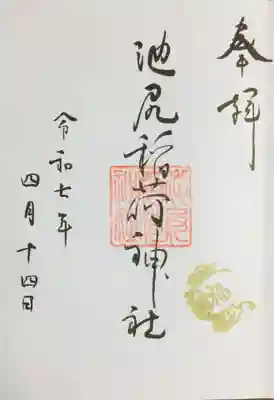 奉拝
池尻稲荷神社
令和七年
四月十四日